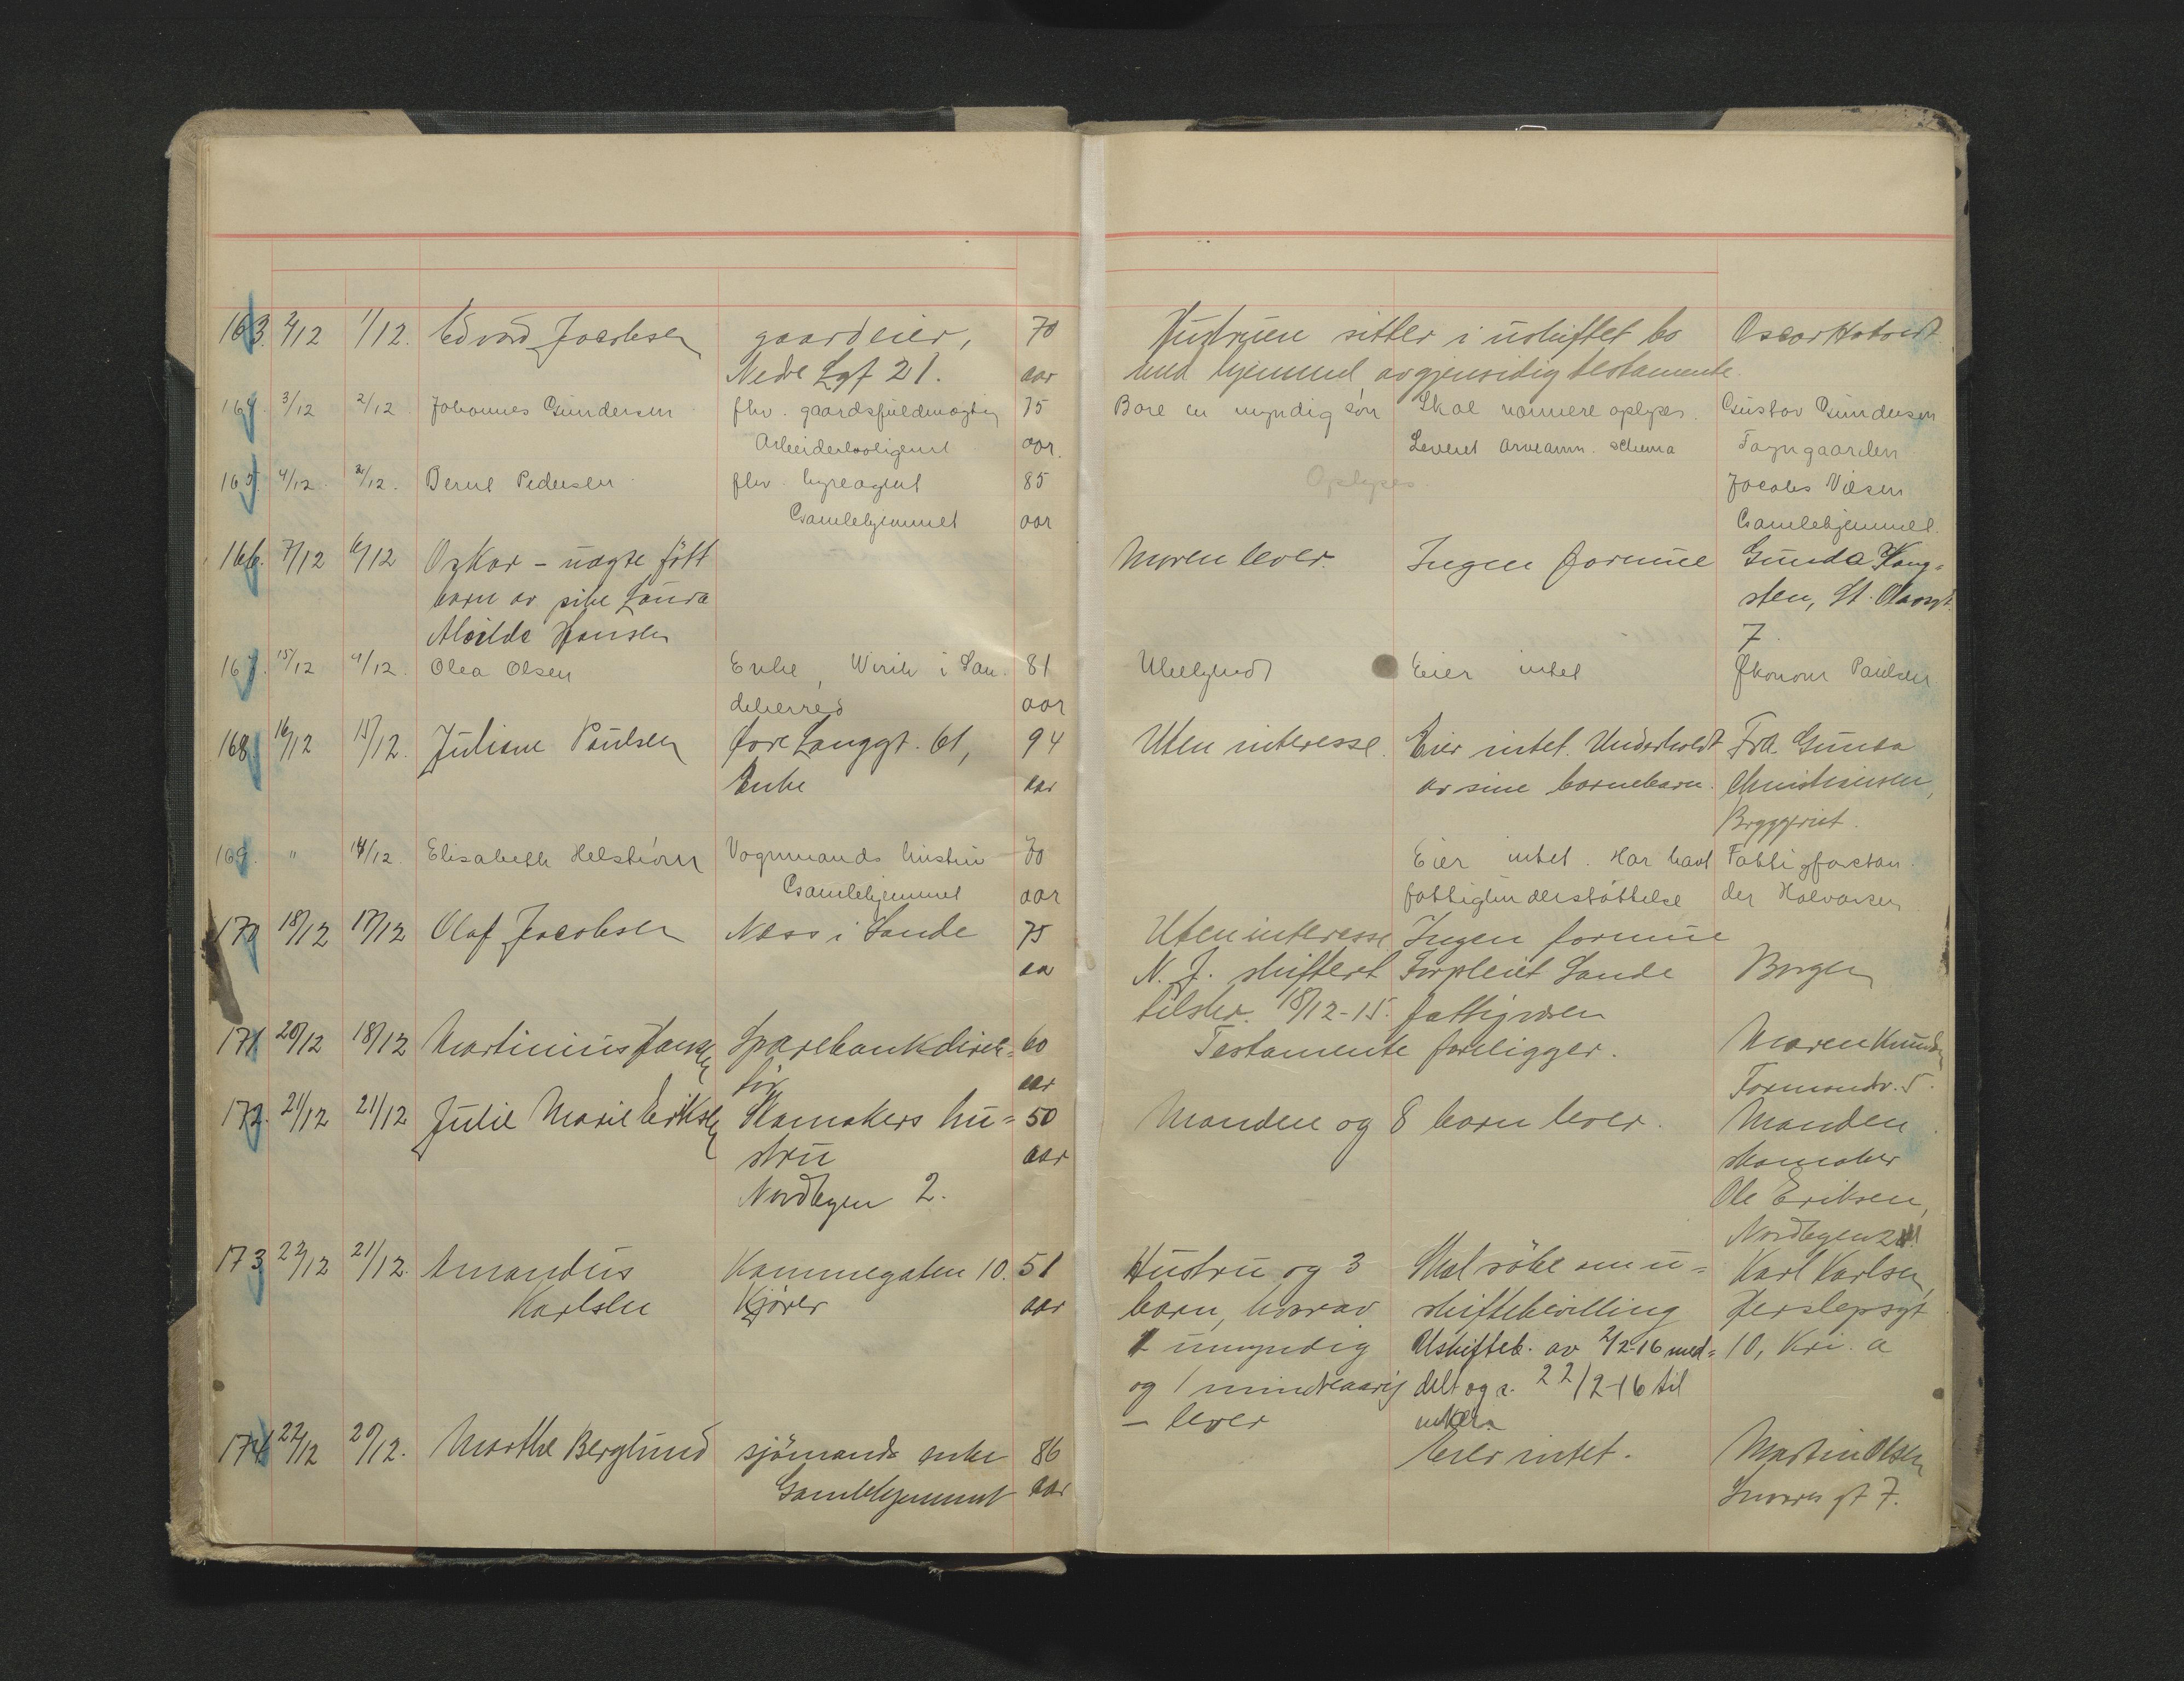 163. 2/12 1/12. Edvard Jacobsen gaardeier, 70 Hustruen sitter i uskiftet bo Oscar
Nedre Lgt 21. aar med hjemmel av gjensidig testamente.
164. 3/12 2/12 Johannes Gundersen fhv. gaardsfuldmægtig 75 Bare en myndig søn Skal nærmere oplyses. Gustav Gundersen
Arbeiderboligene aar. Leveret arveanm. schema Tagngaarden
165. 4/12. 2/12. Bernt Pedersen fhv. hyreagent 85 Oplyses Jacobs
Gamlehjemmet aar Gamlehjemmet.
166. 7/12 6/12 Oskar - uægte født Moren lever. Ingen formue Gunda Kong=
barn av pike Laura sten, St. Olavsgt.
Alvilde Hansen 7.
167. 15/12 9/12. Olea Olsen Enke, i San- 81 Ubekjendt Eier intet Økonom Paulsen
deherred aar
168. 16/12 15/12. Juliane Paulsen Øvre Langgt. 61, 94 Uten interesse. Eier intet. Underholdt Frk. Gunda
Enke aar av sine barnebarn. Christiansen,
Bryggeriet.
169. " 14/12. Elisabeth Helstrøm Vognmands hustru 70 Eier intet. Har havt Fattigforstan-
Gamlehjemmet aar fattigunderstøttelse der Halvorsen
170 18/12 17/12 Olaf Jacobsen Næss i Sande 75 Uten interesse Ingen formue
aar N. J. skifteret Forpleiet Sande Borgen
tilskr. 18/12-15. fattigvæsen
171 20/12 18/12 Martinius Hansen Sparebankdirek= 60 Testamente foreligger. Maren Knudsen
tør aar Farmandv. 5.
172. 21/12 21/12 Julie Marie Eriksen Skomakers hu= 50 Manden og 8 barn lever. Manden
stru aar skomaker
Nordbyen 2. Ole Eriksen,
Nordbyen 2
173 22/12 21/12. Amandus Kammegaten 10. 51 Hustru og 3 Skal søke om u= Karl Karlsen,
Karlsen Kjører aar barn, hvorav skiftebevilling Herslepsgt
1 umyndig Uskifteb. av 2/2-16 med= 10, Kri.a
og 1 mindreaarig delt og s. 22/2-16 til
- lever enken
174. 22/12 20/12. Marthe Berglund sjømands enke 86 Eier intet. Martin Olsen
Gamlehjemmet aar Snorres gt 7.